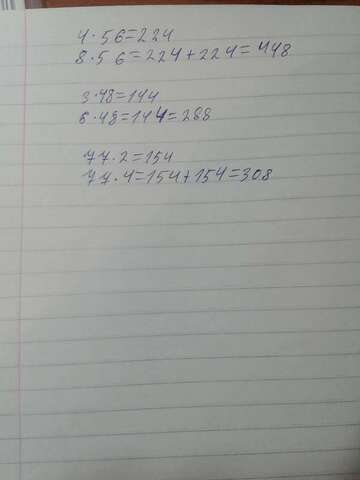 4·56=224
8·56=224+224=448
3·48=144
6·48=144=288
77·2=154
77·4=154+154=308